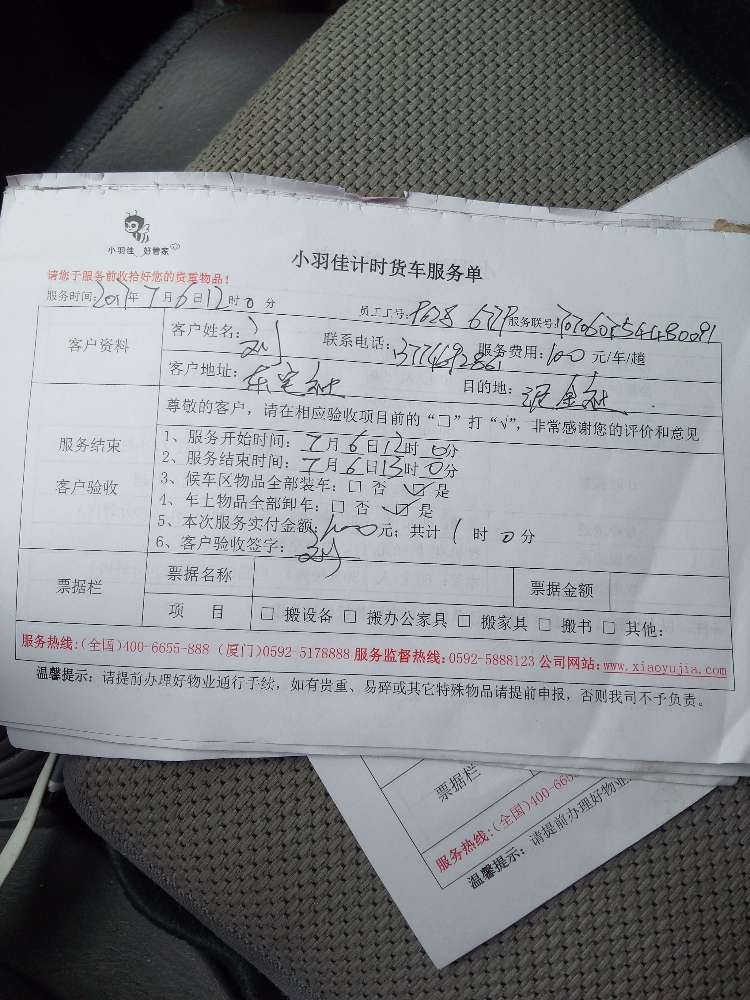 小羽佳 好管家
小羽佳计时货车服务单
请您于服务前收拾好您的贵重物品!
服务时间:2017年7月6日12时0分
员工工号: 服务联号:
客户资料
客户姓名:刘 联系电话: 服务费用:100元/车/趟
客户地址:东宅社 目的地:
尊敬的客户，请在相应验收项目前的“□”打“√”，非常感谢您的评价和意见
服务结束
客户验收
1、服务开始时间:7月6日12时0分
2、服务结束时间:7月6日13时0分
3、候车区物品全部装车:□ 否 ☑ 是
4、车上物品全部卸车:□ 否 ☑ 是
5、本次服务实付金额:100元; 共计 1 时 0 分
6、客户验收签字: 刘
票据栏
票据名称 票据金额
项 目 □ 搬设备 □ 搬办公家具 □ 搬家具 □ 搬书 □ 其他:
服务热线:(全国)400-6655-888 (厦门)0592-5178888 服务监督热线:0592-5888123 公司网站:www.xiaoyujia.com
温馨提示: 请提前办理好物业通行手续，如有贵重、易碎或其它特殊物品请提前申报，否则我司不予负责。
票据栏
服务热线:(全国)400-665
温馨提示: 请提前办理好物业